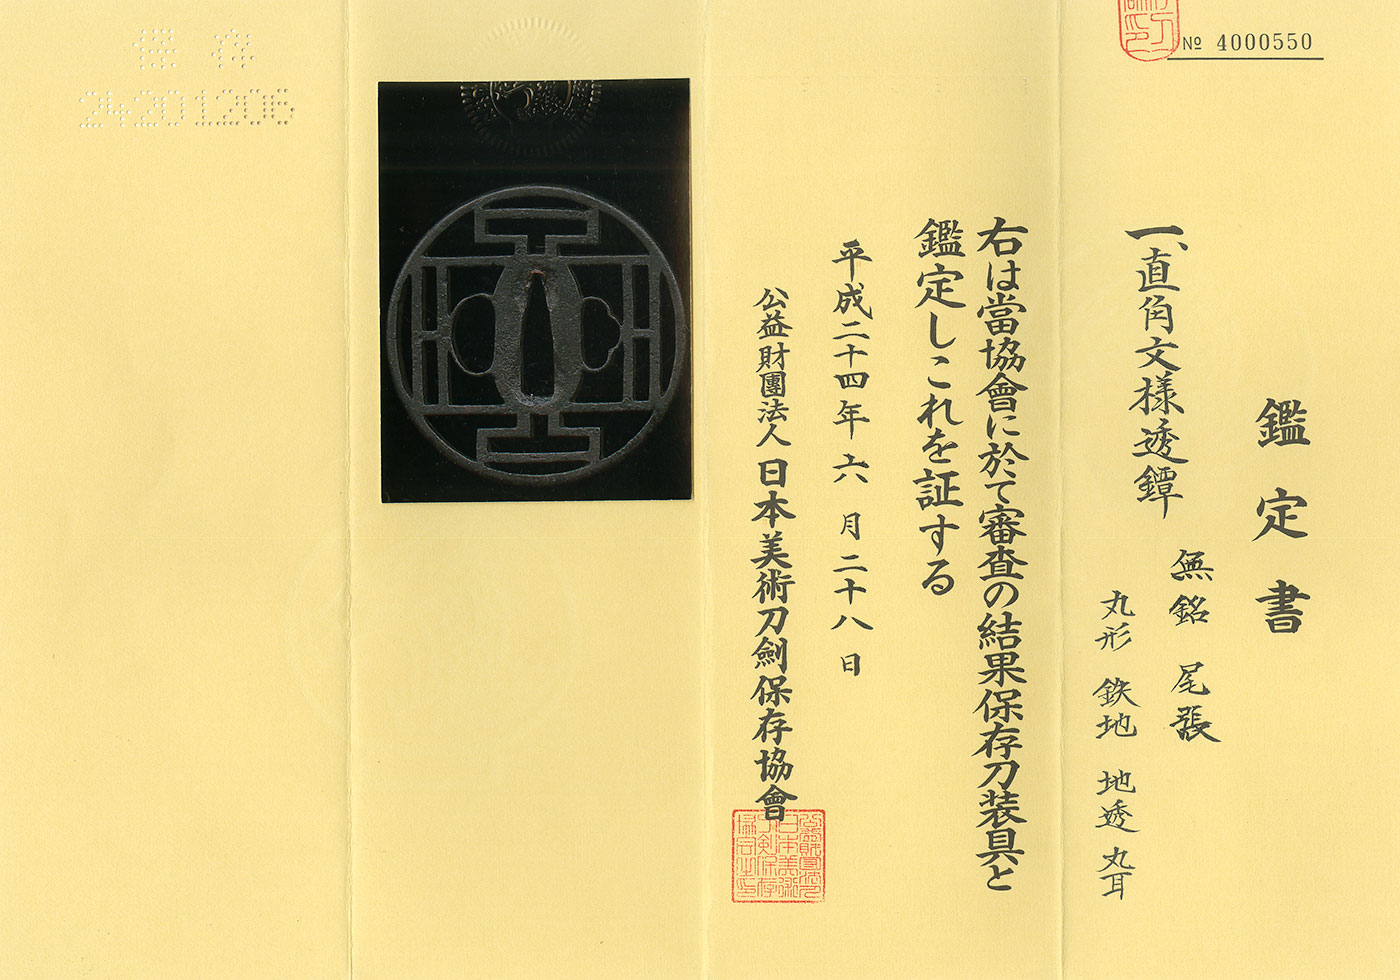 № 4000550
鑑定書
一、直角文様透鐔
無銘 尾張
丸形 鉄地 地透 丸耳
右は當協會に於て審査の結果保存刀装具と
鑑定しこれを証する
平成二十四年六月二十八日
公益財團法人日本美術刀劍保存協會
保存
24201206